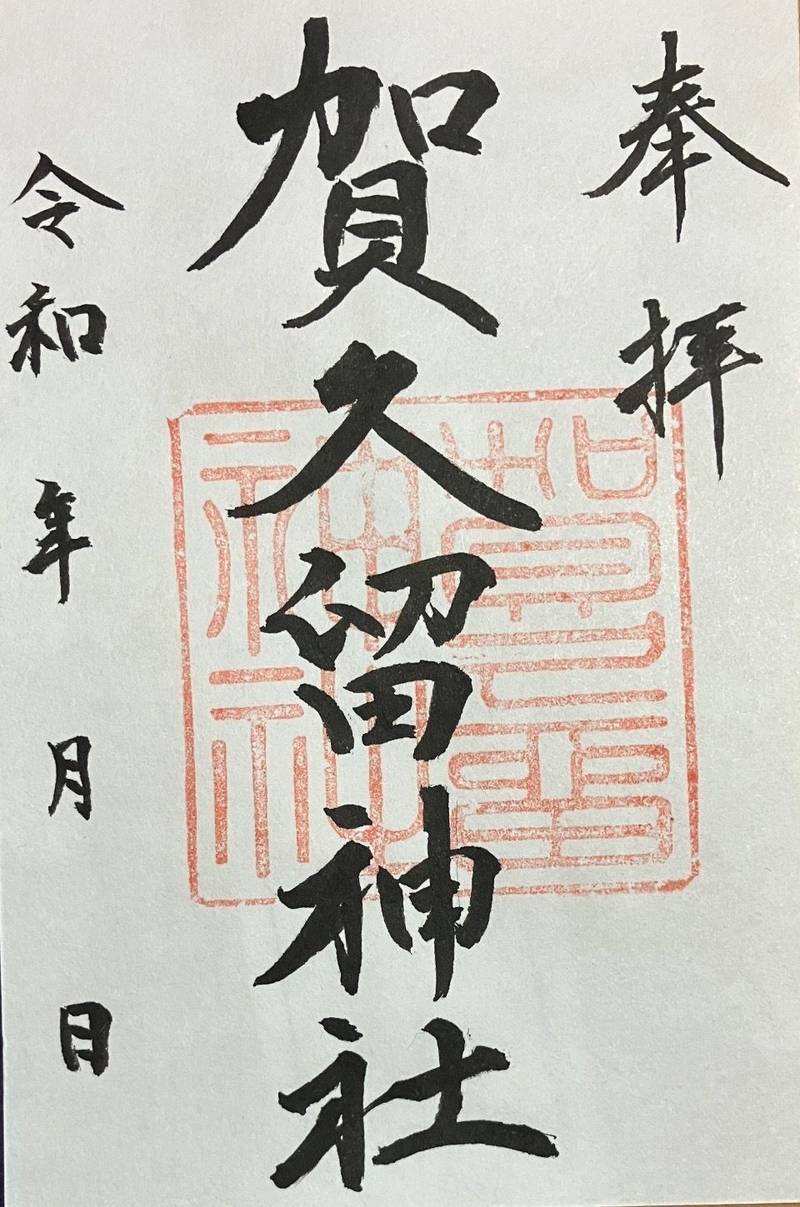 奉拝
賀久留神社
賀久留
神社
令和 年 月 日